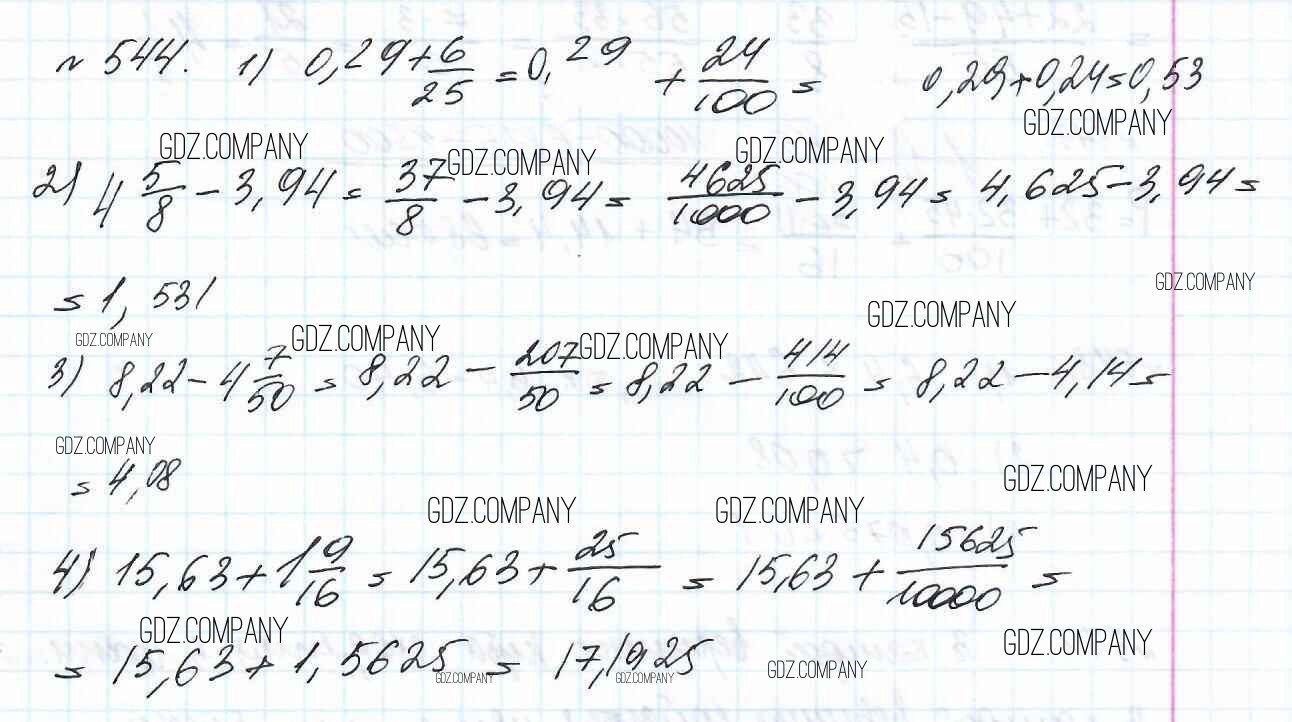 № 544. 1) 0,29 + 6/25 = 0,29 + 24/100 = 0,29+0,24=0,53
GDZ.COMPANY GDZ.COMPANY GDZ.COMPANY GDZ.COMPANY
2) 4 5/8 - 3,94 = 37/8 - 3,94 = 4625/1000 - 3,94 = 4,625-3,94 =
= 1,531
GDZ.COMPANY GDZ.COMPANY GDZ.COMPANY GDZ.COMPANY GDZ.COMPANY
3) 8,22 - 4 7/50 = 8,22 - 207/50 = 8,22 - 414/100 = 8,22 - 4,14 =
GDZ.COMPANY
= 4,08
GDZ.COMPANY GDZ.COMPANY GDZ.COMPANY
4) 15,63 + 1 9/16 = 15,63 + 25/16 = 15,63 + 15625/10000 =
GDZ.COMPANY GDZ.COMPANY
= 15,63 + 1,5625 = 17,1925
GDZ.COMPANY GDZ.COMPANY GDZ.COMPANY